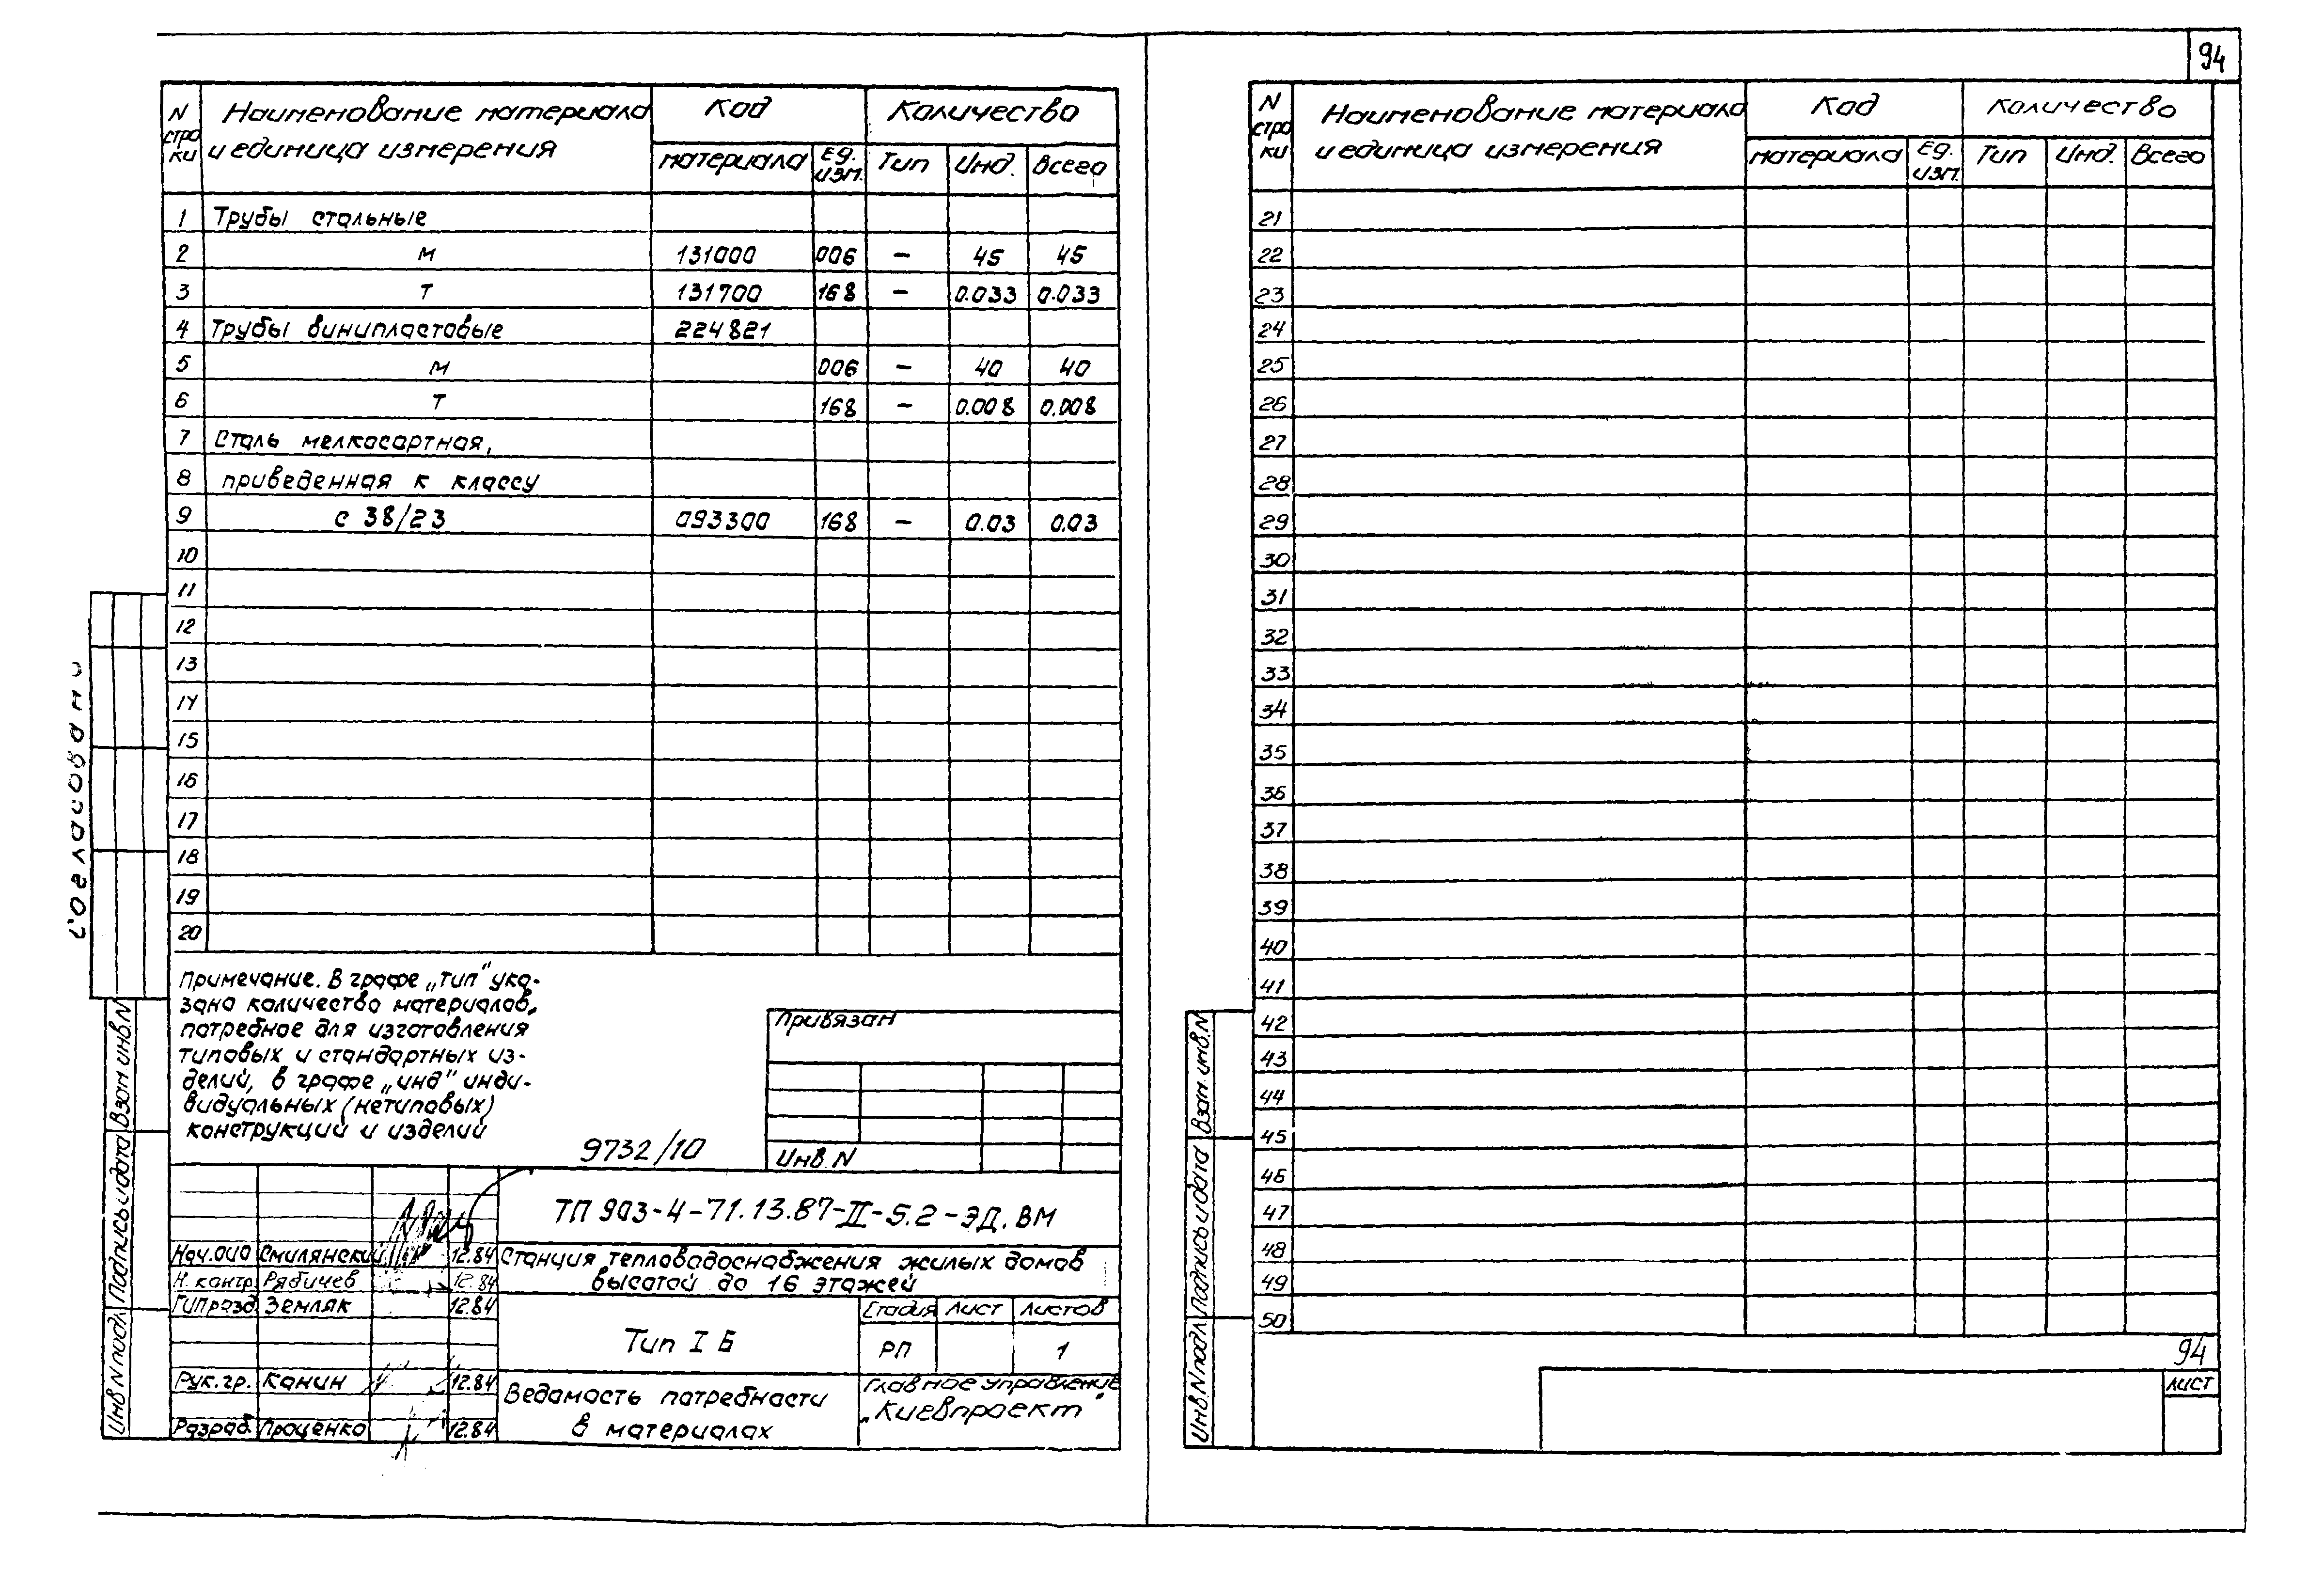 94
N стро ки Наименование материала и единица измерения Код Количество
материала Ед. изм. Тип Инд. Всего
1 Трубы стальные
2 м 131000 006 – 45 45
3 т 131700 168 – 0.033 0.033
4 Трубы винипластовые 224821
5 м 006 – 40 40
6 т 168 – 0.008 0.008
7 Сталь мелкосортная,
8 приведенная к классу
9 с 38/23 093300 168 – 0.03 0.03
10
11
12
13
14
15
16
17
18
19
20
Примечание. В графе „тип" ука-
зано количество материалов,
потребное для изготовления
типовых и стандартных из-
делий, в графе „инд" инди-
видуальных (нетиповых)
конструкций и изделий
9732/10
Привязан
Инв. N
ТП 903-4-71.13.87-II-5.2-ЭД.ВМ
Нач. ОИО Смилянский 12.84
Н. контр. Рябичев 12.84
ГИП разд. Земляк 12.84
Рук. гр. Канин 12.84
Разраб. Проценко 12.84
Станция тепловодоснабжения жилых домов
высотой до 16 этажей
Тип I Б
Стадия Лист Листов
РП 1
Ведомость потребности
в материалах
Главное управление
„Киевпроект"
Согласовано
Взам. инв. N
Подпись и дата
Инв N подл
N стро ки Наименование материала и единица измерения Код Количество
материала Ед. изм. Тип Инд. Всего
21
22
23
24
25
26
27
28
29
30
31
32
33
34
35
36
37
38
39
40
41
42
43
44
45
46
47
48
49
50
Взам. инв. N
Подпись и дата
Инв. N подл
94
Лист